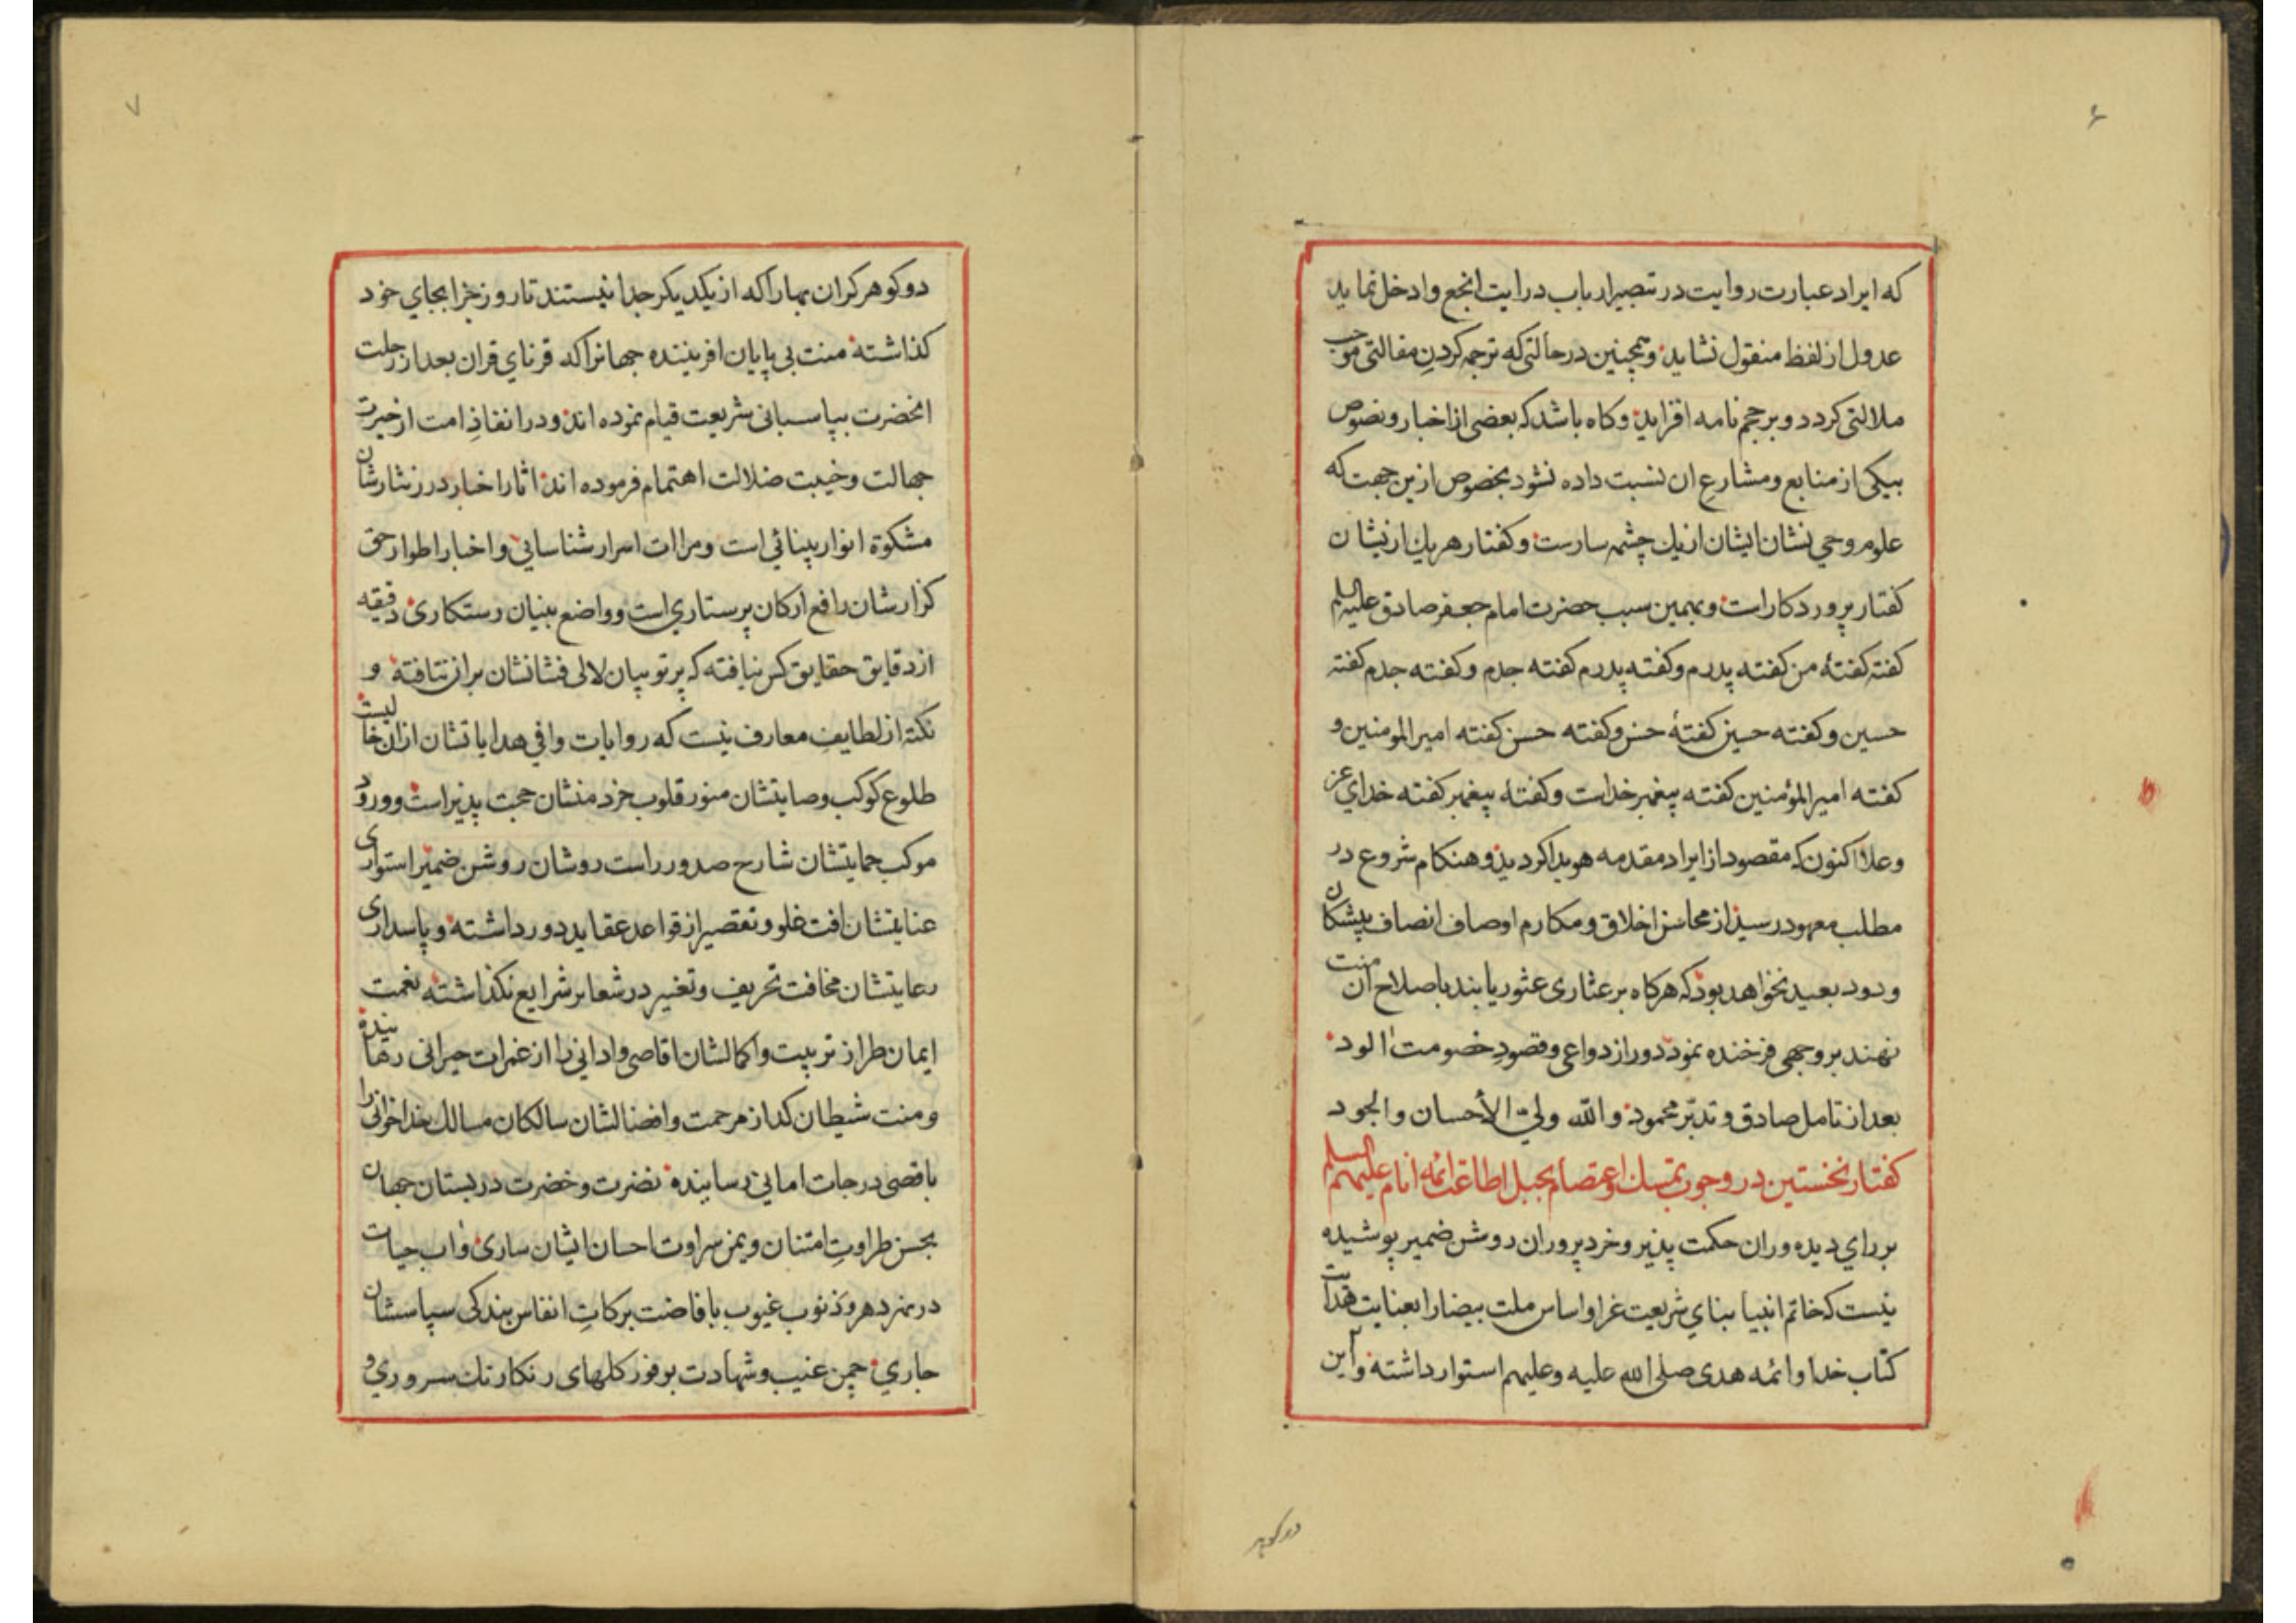 ۶
که ایراد عبارت روایت در تبصیر ارباب درایت انجع و ادخل نماید
عدول از لفظ منقول نشاید و همچنین در حالتی که ترجمه کردنِ مقالتی موجب
ملالتی کردد و بر حجم نامه افزاید و کاه باشد که بعضی از اخبار و نصوص
بیکی از منابع و مشارع ان نسبت داده نشود بخصوص ازین جهت که
علوم وحی نشان ایشان از یك چشمه سارست و کفتار هر یك ازیشان
کفتار پروردکار است و بهمین سبب حضرت امام جعفر صادق علیه السلم
کفته کفتهٔ من کفته پدرم و کفته پدرم کفته جدم و کفته جدم کفته
حسین و کفته حسین کفتهٔ حسن و کفته حسن کفته امیر المومنین و
کفته امیر المؤمنین کفته پیغمبر خداست و کفتهٔ پیغمبر کفته خدای عز
وعلا اکنون که مقصود از ایراد مقدمه هویدا کردید و هنکام شروع در
مطلب معهود رسید از محاسن اخلاق و مکارم اوصاف انصاف پیشکان
ودود بعید نخواهد بود که هرکاه بر عثاری عثور یابند باصلاح آن منت
نهند بر وجهی فرخنده نمود دور از دواعی و قصودِ خصومت الود
بعد از تامل صادق و تدبّر محمود والله ولیّ الأحسان والجود
کفتار نخستین در وجوب تمسك و اعتصام بحبل اطاعت ائمه انام علیهم السلم
بر رای دیده وران حکمت پذیر و خرد پروران روشن ضمیر پوشیده
نیست که خاتم انبیا بنای شریعت غرا و اساس ملت بیضا را بعنایت هدایت
کتاب خدا و ائمه هدی صلی الله علیه وعلیهم استوار داشته و این
دو کوهر
۷
دو کوهر کران بها را که از یکدیکر جدا نیستند تا روز جزا بجای خود
کذاشته منت بی پایان افریننده جهانرا که قرنای قران بعد از رحلت
انحضرت بپاسبانی شریعت قیام نموده اند و در انقاذِ امت از حیرت
جهالت و خیبت ضلالت اهتمام فرموده اند اثار اخبار درر نثارشان
مشکوة انوار بینائی است و مراات اسرار شناسایی و اخبار اطوار حق
کزارشان رافع ارکان پرستاری است و واضع بنیان رستکاری دقیقه
از دقایق حقایق کس نیافته که پرتو بیان لالی فشانشان بر ان نتافته و
نکته از لطایف معارف نیست که روایات وافی هدایاتشان ازان خالیست
طلوع کوکب وصایتشان منور قلوب خردمنشان حجت پذیر است و ورود
موکب حمایتشان شارح صدور راست روشان روشن ضمیر استواری
عنایتشان افت غلو و تقصیر از قواعد عقاید دور داشته و پاسداری
رعایتشان مخافت تحریف و تغییر در شعایر شرایع نکذاشته نعمت
ایمان طراز تربیت و اکمالشان اقاصی و ادانی را از غمرات حیرانی رهاینده
و منت شیطان کداز مرحمت و افضالشان سالکان مسالك خداخوانی را
باقصی درجات امانی رساینده نضرت و خضرت در بستان جهان
بحسن طراوتِ امتنان و یمن سراوت احسان ایشان ساری و اب حیات
در دهر و ذنوب غیوب بافاضت برکاتِ انفاس بندکی سپاسشان
جاری چمن غیب و شهادت بر فوز کلهای رنکارنك سروری و